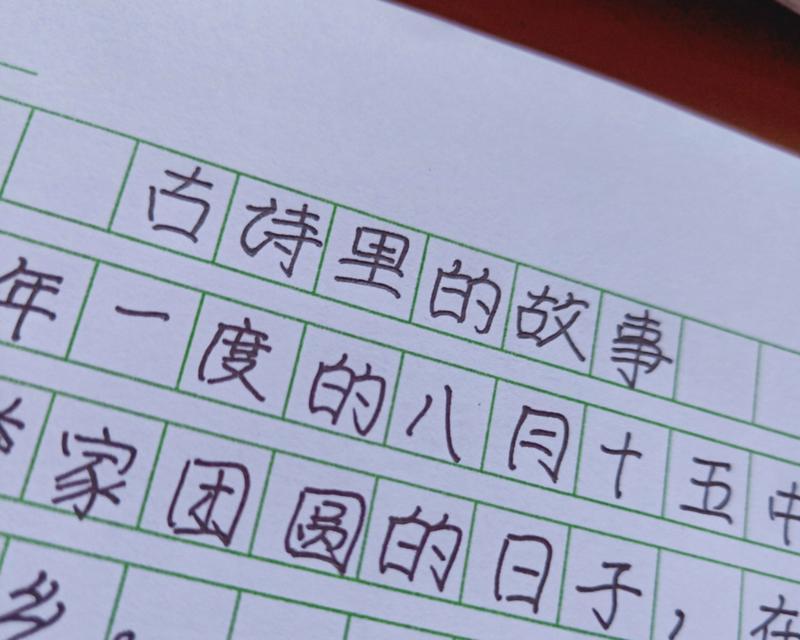 古诗里的故事
年一度的八月十五中
家团圆的日子，在
乡。